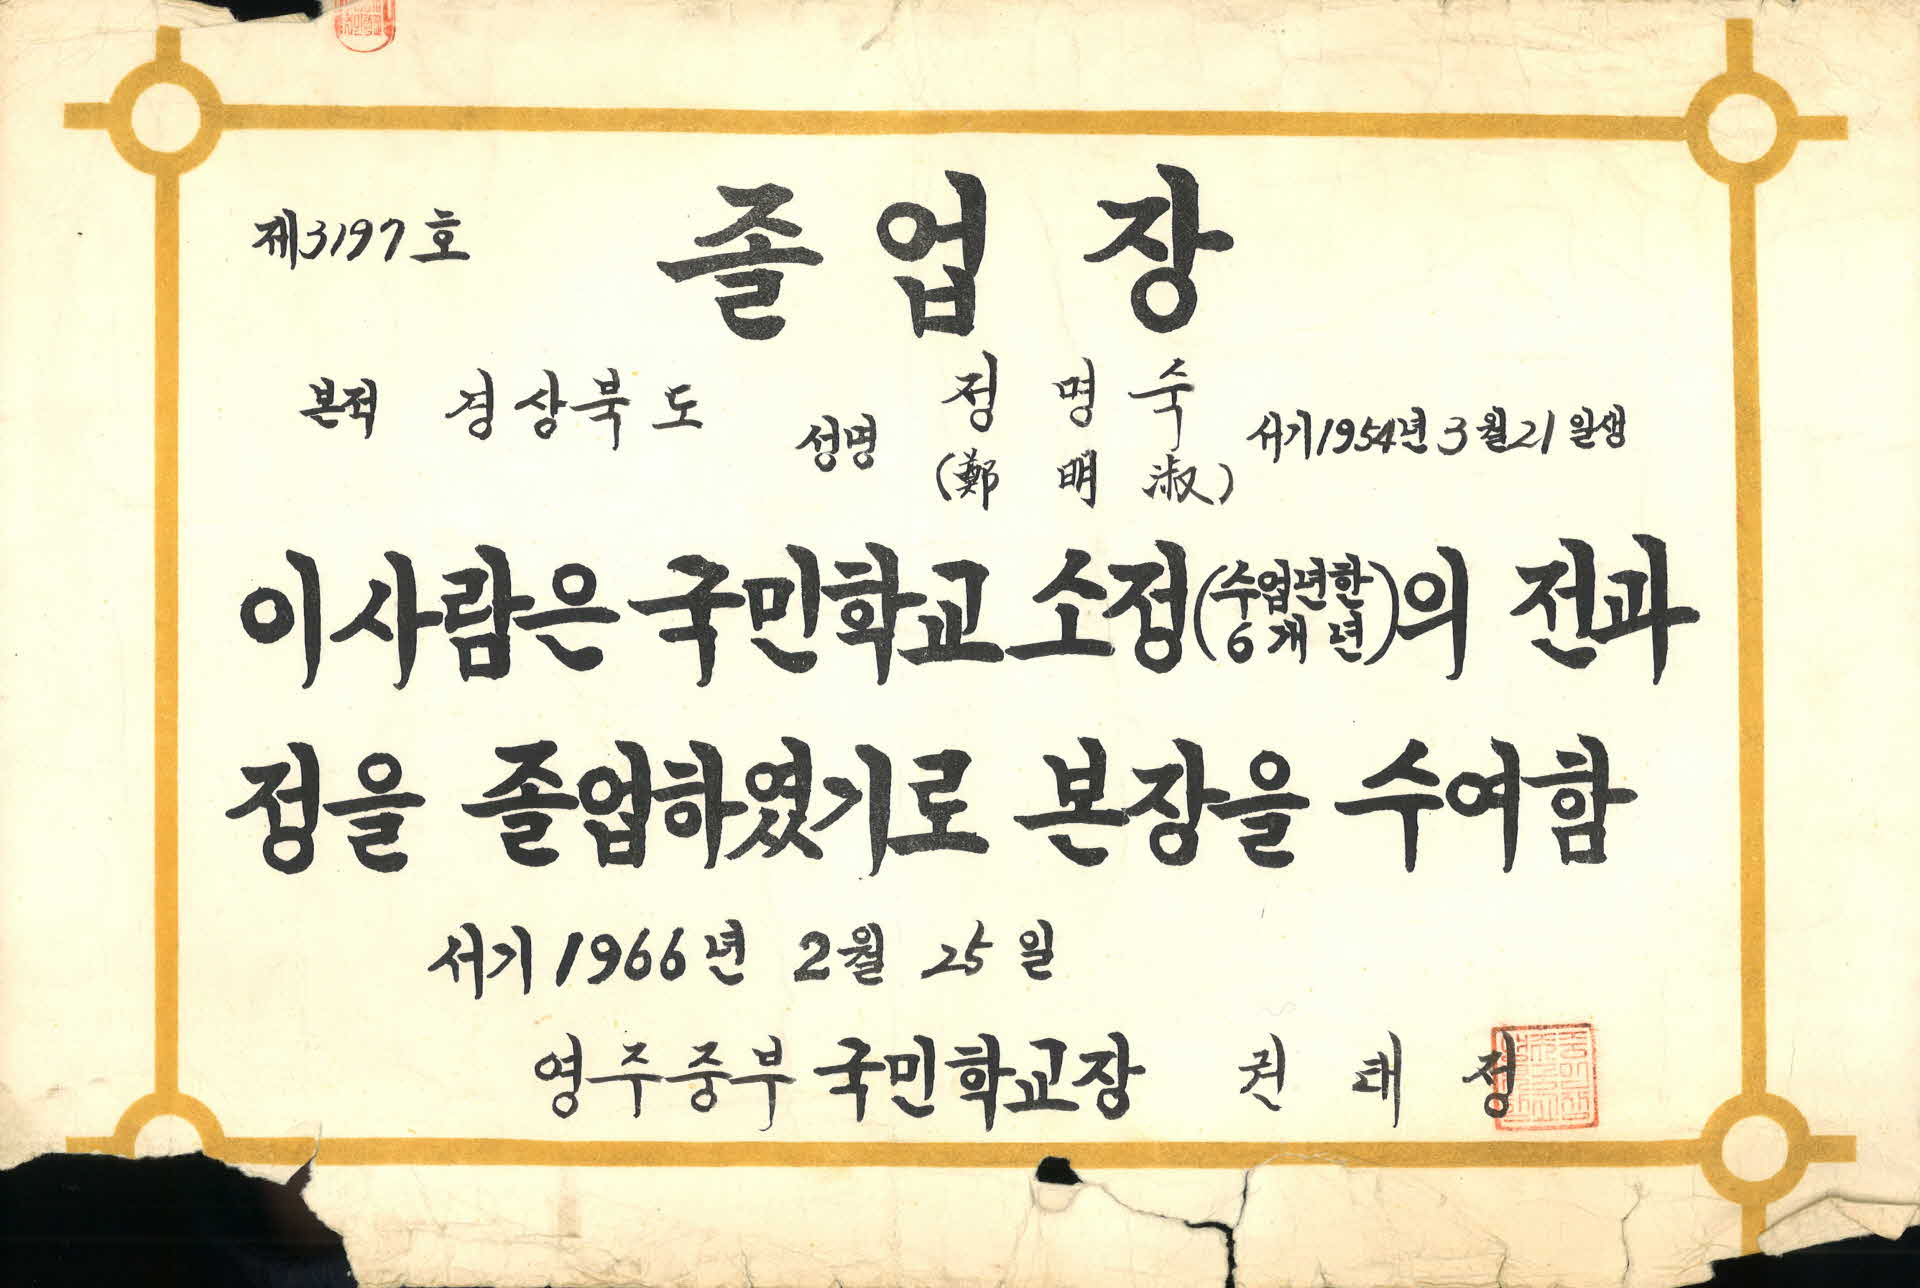 제3197호
졸업장
본적 경상북도
성명 정명숙
(鄭明淑)
서기1954년3월21일생
이사람은 국민학교 소정(수업년한 6개년)의 전과
정을 졸업하였기로 본장을 수여함
서기1966년 2월 25일
영주중부국민학교장 권태정